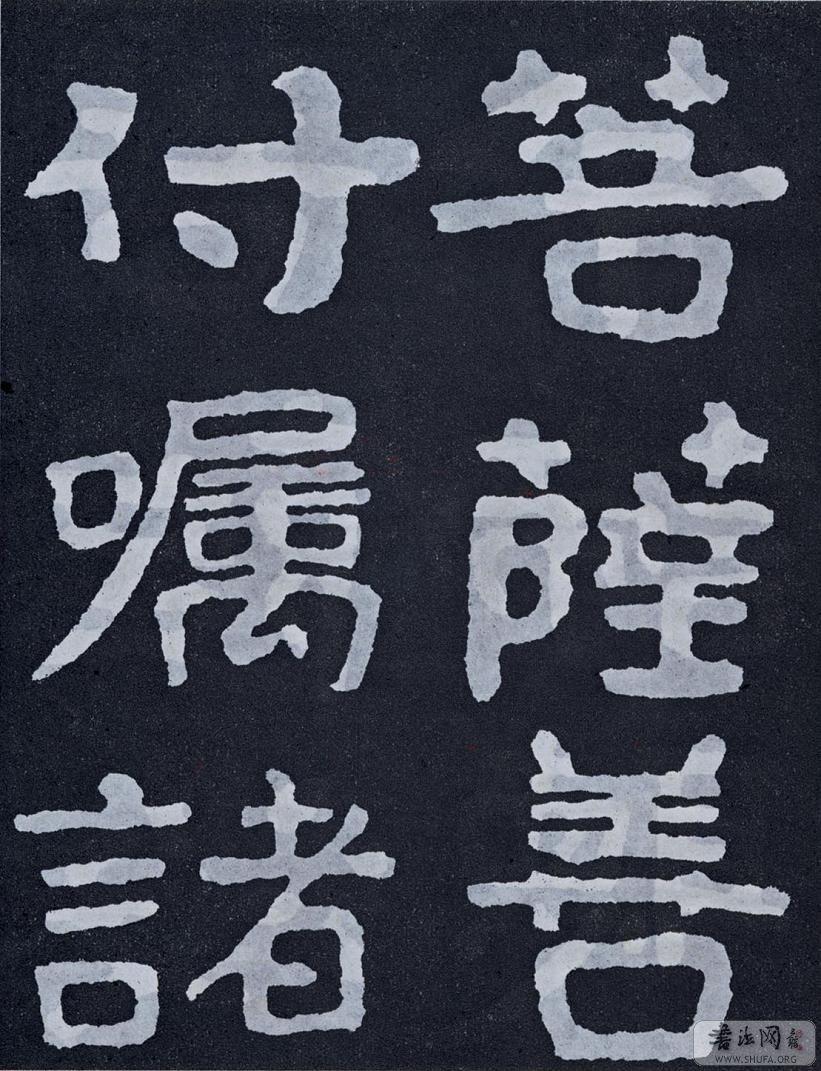 菩薩善
付囑諸
書法网
WWW.SHUFA.ORG